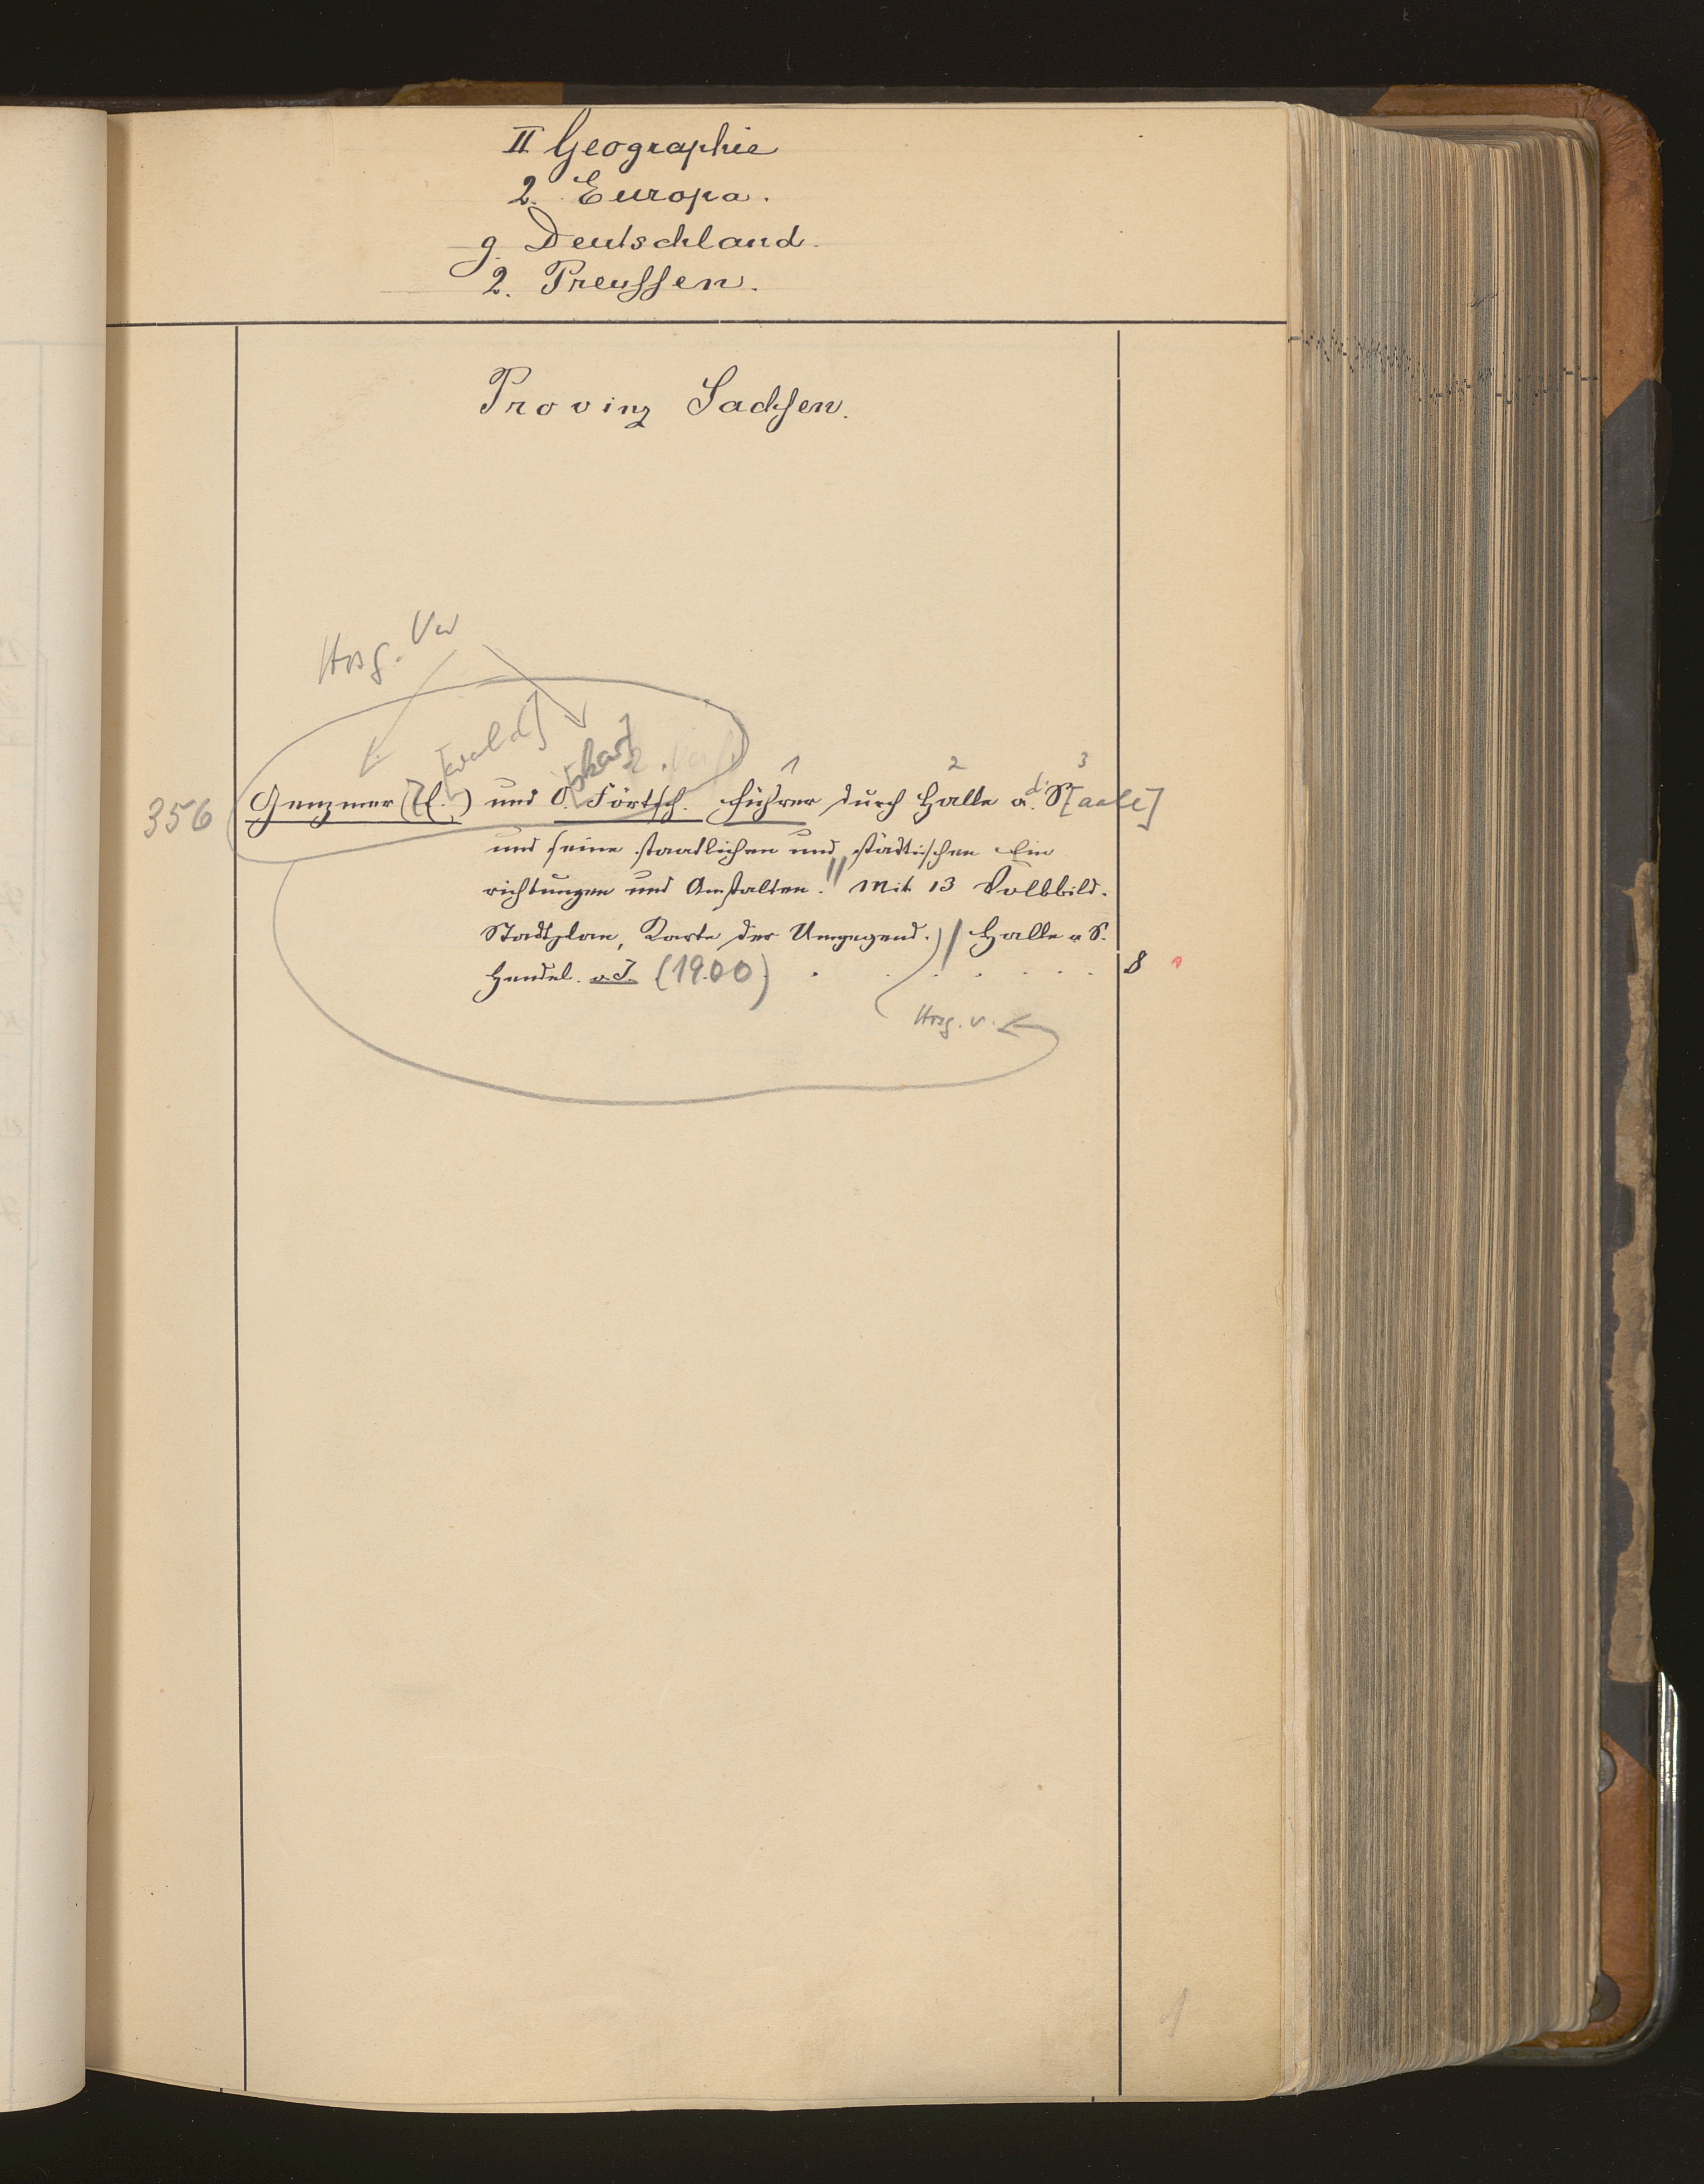 II Geographie
2. Europa.
g. Deutschland.
2. Preussen.
Provinz Sachsen.
Hrsg. v.
[wald] [skar]
1 2 3
356 Genzmer (E.) und O. Förtsch. Führer durch Halle a. d. S[aale]
und seine staatlichen und städtischen Ein
richtungen und Anstalten. // Mit 13 Vollbild.
Stadtplan, Karte der Umgegend.) / Halle a S.
Hendel. o. J. (1900) . . . . . . . 8
Hrsg. v.
1